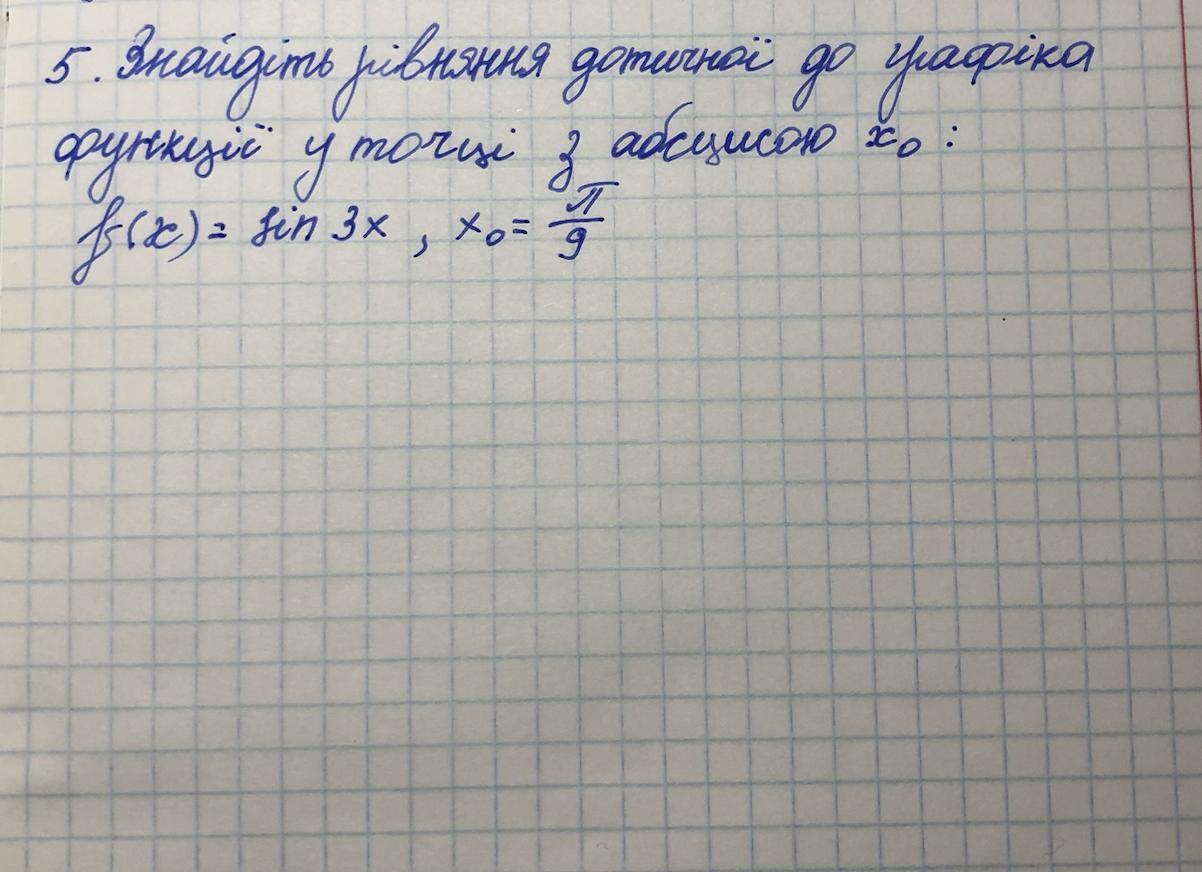 5. Знайдіть рівняння дотичної до графіка
функції у точці з абсцисою x₀ :
f(x) = sin 3x , x₀ = π/9